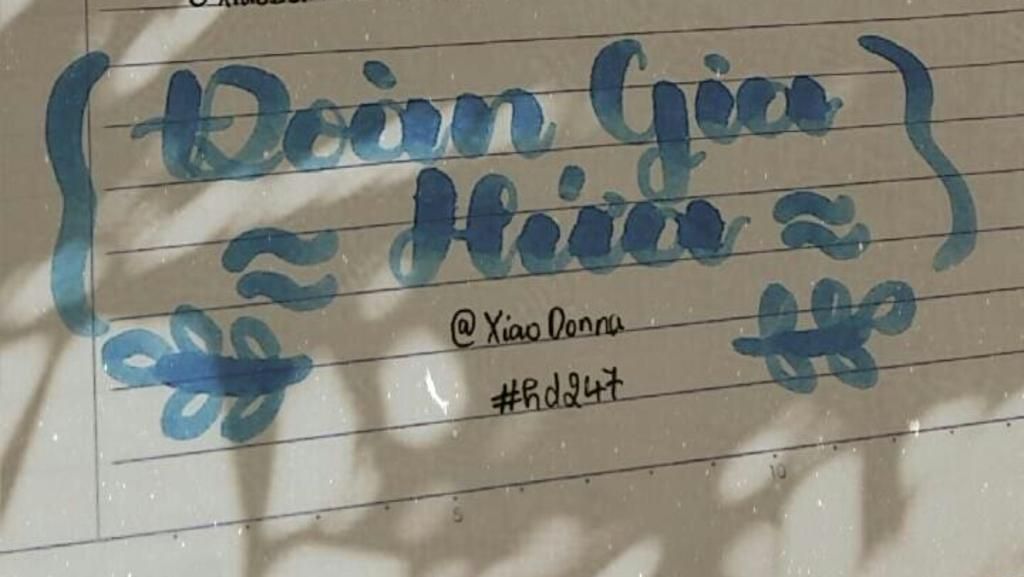 Đoàn Gia
@XiaoDonna
#hd247
5 10